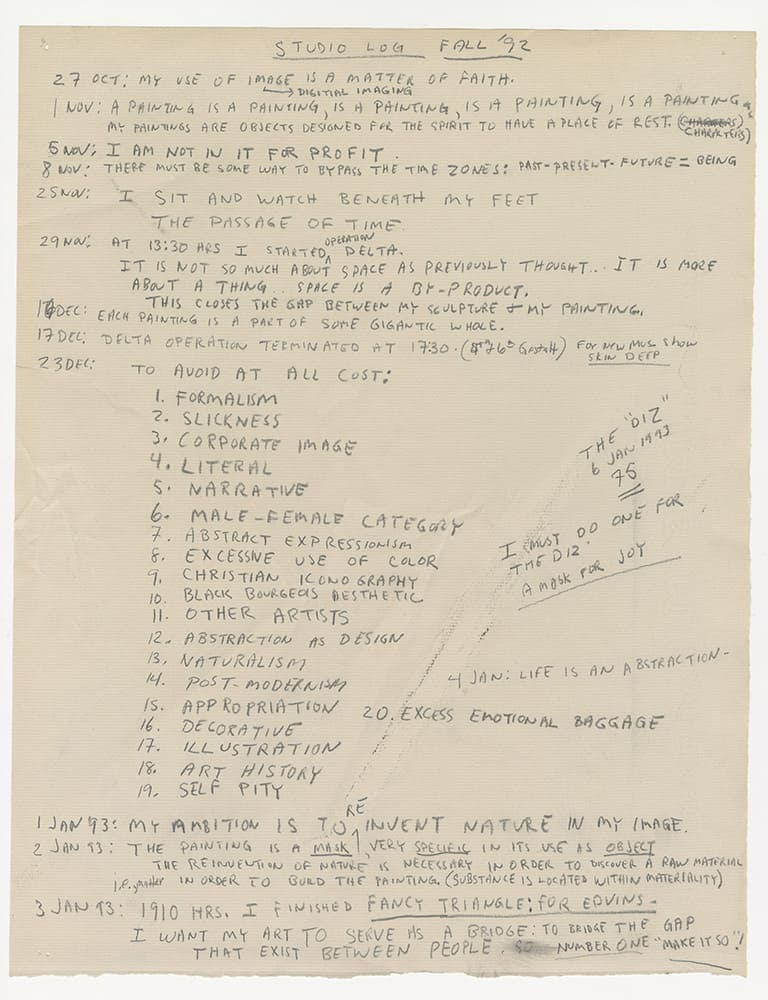 STUDIO LOG FALL '92
27 OCT: MY USE OF IMAGE IS A MATTER OF FAITH.
→ DIGITIAL IMAGING
1 NOV: A PAINTING IS A PAINTING, IS A PAINTING, IS A PAINTING, IS A PAINTING
MY PAINTINGS ARE OBJECTS DESIGNED FOR THE SPIRIT TO HAVE A PLACE OF REST. (CHARTERS)
CHARACTERS)
5 NOV: I AM NOT IN IT FOR PROFIT.
8 NOV: THERE MUST BE SOME WAY TO BYPASS THE TIME ZONES: PAST-PRESENT-FUTURE = BEING
25 NOV: I SIT AND WATCH BENEATH MY FEET
THE PASSAGE OF TIME
29 NOV: AT 13:30 HRS I STARTED OPERATION DELTA.
IT IS NOT SO MUCH ABOUT SPACE AS PREVIOUSLY THOUGHT... IT IS MORE
ABOUT A THING.. SPACE IS A BY-PRODUCT.
THIS CLOSES THE GAP BETWEEN MY SCULPTURE & MY PAINTING.
DEC: EACH PAINTING IS A PART OF SOME GIGANTIC WHOLE.
17 DEC: DELTA OPERATION TERMINATED AT 17:30. FOR NEW MUS. SHOW
SKIN DEEP
23 DEC: TO AVOID AT ALL COST:
1. FORMALISM
2. SLICKNESS
3. CORPORATE IMAGE
4. LITERAL
5. NARRATIVE
6. MALE-FEMALE CATEGORY
7. ABSTRACT EXPRESSIONISM
8. EXCESSIVE USE OF COLOR
9. CHRISTIAN ICONOGRAPHY
10. BLACK BOURGEOIS AESTHETIC
11. OTHER ARTISTS
12. ABSTRACTION AS DESIGN
13. NATURALISM
14. POST-MODERNISM
15. APPROPRIATION
16. DECORATIVE
17. ILLUSTRATION
18. ART HISTORY
19. SELF PITY
20. EXCESS EMOTIONAL BAGGAGE
THE "DIZ"
6 JAN 1993
75
I MUST DO ONE FOR
THE DIZ.
A MASK FOR JOY
4 JAN: LIFE IS AN ABSTRACTION-
1 JAN '93: MY AMBITION IS TO RE INVENT NATURE IN MY IMAGE.
2 JAN 93: THE PAINTING IS A MASK, VERY SPECIFIC IN ITS USE AS OBJECT
THE REINVENTION OF NATURE IS NECESSARY IN ORDER TO DISCOVER A RAW MATERIAL
i.e. matter IN ORDER TO BUILD THE PAINTING. (SUBSTANCE IS LOCATED WITHIN MATERIALITY)
3 JAN 93: 1910 HRS. I FINISHED FANCY TRIANGLE: FOR EDVINS-
I WANT MY ART TO SERVE AS A BRIDGE: TO BRIDGE THE GAP
THAT EXIST BETWEEN PEOPLE. SO NUMBER ONE "MAKE IT SO"!